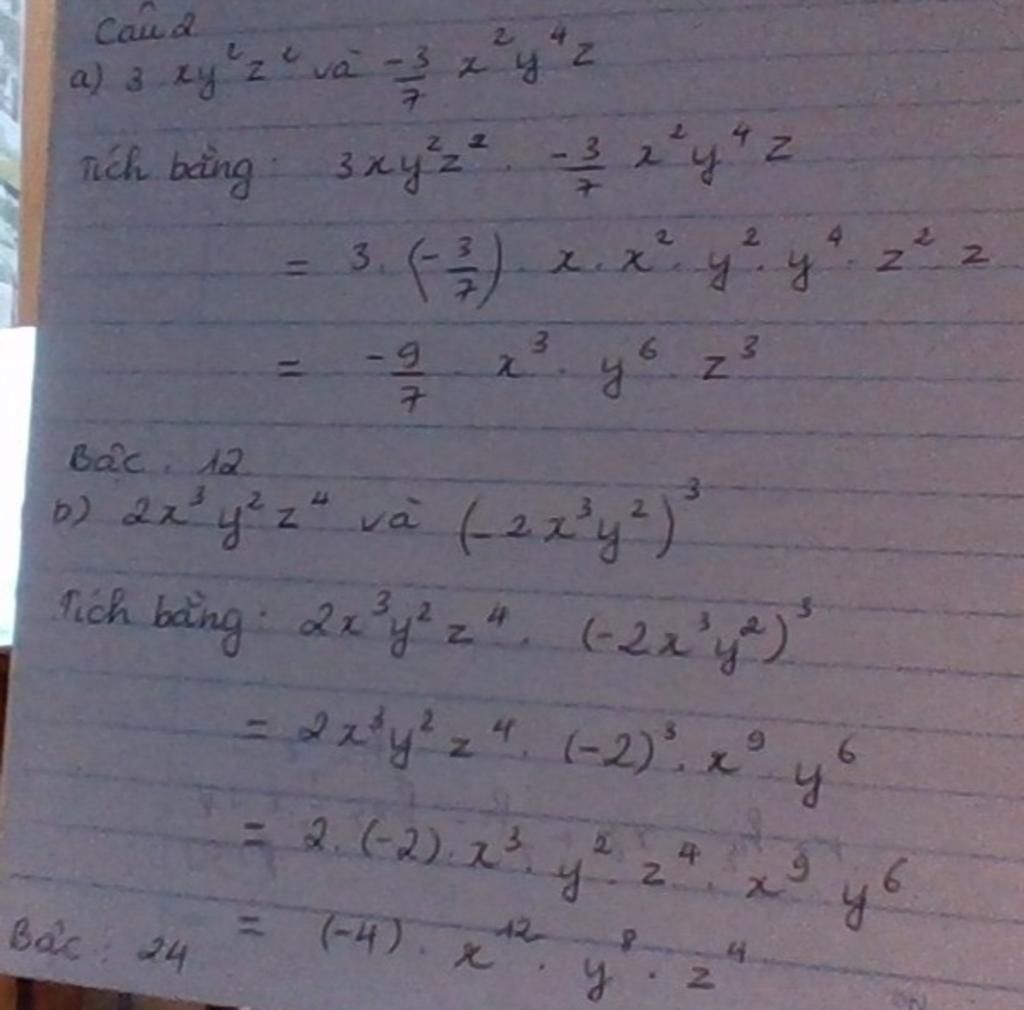 Câu 2
a) 3 xy²z² và -3/7 x²y⁴z
Tích bằng: 3xy²z² . -3/7 x²y⁴z
= 3. (-3/7) . x . x² . y² . y⁴ . z² z
= -9/7 . x³ . y⁶ z³
Bậc . 12
b) 2x³y²z⁴ và (-2x³y²)³
Tích bằng: 2x³y²z⁴ . (-2x³y²)³
= 2x³y²z⁴ . (-2)³ . x⁹ y⁶
= 2. (-2) . x³ . y² . z⁴ . x⁹ y⁶
= (-4) . x¹² . y⁸ . z⁴
Bậc : 24